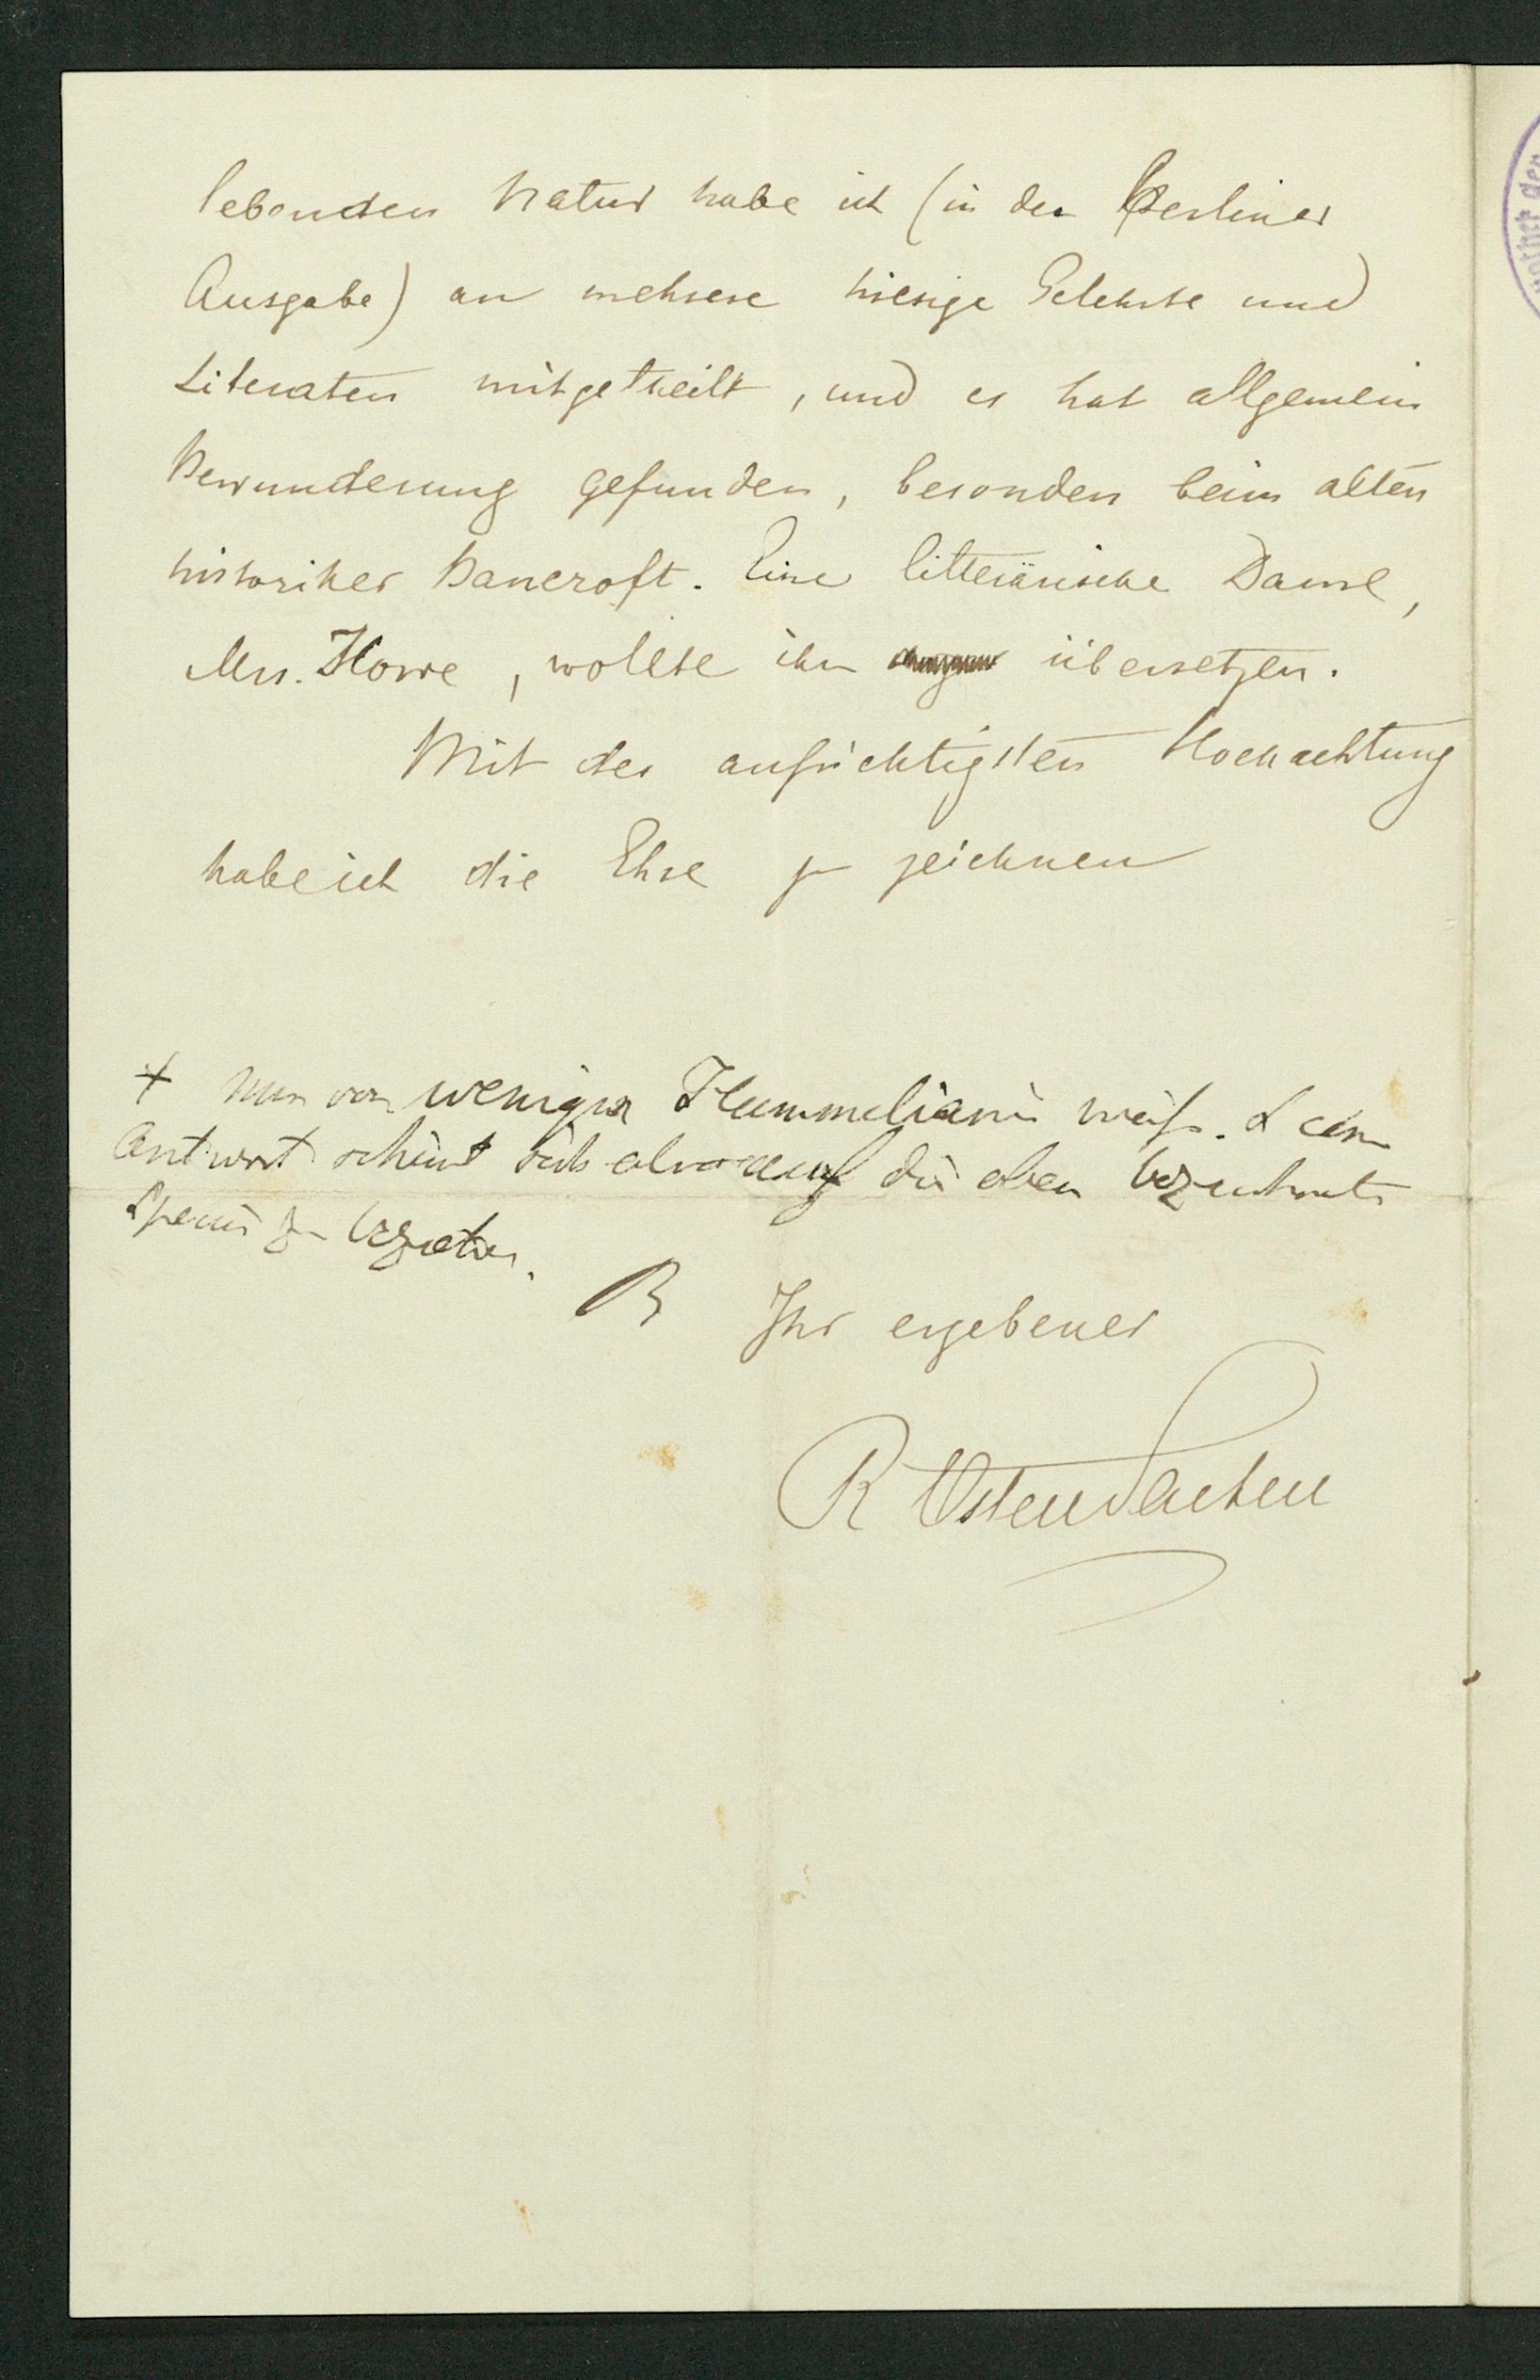 lebenden Natur habe ich (in der Berliner
Ausgabe) an mehrere hiesige Gelehrte und
Literaten mitgetheilt, und es hat allgemein
Bewunderung gefunden, besonders beim alten
historiker Bancroft. Eine litterärische Dame,
Mrs. Howe, wollte ihn übersetzen.
Mit der aufrichtigsten Hochachtung
habe ich die Ehre zu zeichnen
+ nur von weniger weiß.
Antwort scheint sich also auf die oben bezeichnete
Species zu beziehen.
B
Ihr ergebener
R OstenSacken